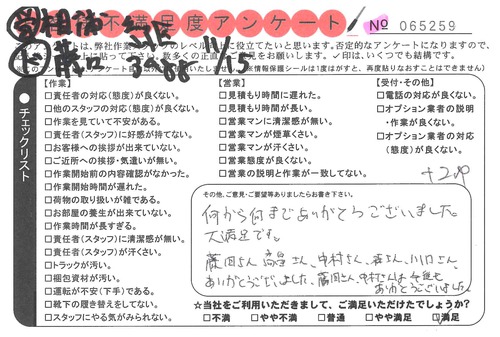 不満足度アンケート
№ 065259
チェックリスト
【作業】
□責任者の対応(態度)が良くない。
□他のスタッフの対応(態度)が良くない。
□作業を見ていて不安がある。
□責任者(スタッフ)に好感が持てない。
□お客様への挨拶が出来ていない。
□ご近所への挨拶・気遣いが無い。
□作業開始前の内容確認がなかった。
□作業開始時間が遅れた。
□荷物の取り扱いが雑である。
□お部屋の養生が出来ていない。
□作業時間が長すぎる。
□責任者(スタッフ)に清潔感が無い。
□責任者(スタッフ)が汗くさい。
□トラックが汚い。
□梱包資材が汚い。
□運転が不安(下手)である。
□靴下の履き替えをしてない。
□スタッフにやる気がみられない。
【営業】
□見積もり時間に遅れた。
□見積もり時間が長い。
□営業マンに清潔感が無い。
□営業マンが煙草くさい。
□営業マンが汗くさい。
□営業態度が良くない。
□営業の説明と作業が一致してない。
【受付・その他】
□電話の対応が良くない。
□オプション業者の説明
・作業が良くない。
□オプション業者の対応
(態度)が良くない。
その他、ご意見・ご要望等ありましたらお書き下さい。
何から何までありがとうございました。
大満足です。
藤田さん、高畠さん、中村さん、森さん、川口さん、
ありがとうございました。藤田さん、中村さんは
ありがとうございました
☆当社をご利用いただきまして、ご満足いただけたでしょうか?
□不満 □やや不満 □普通 □やや満足 □満足